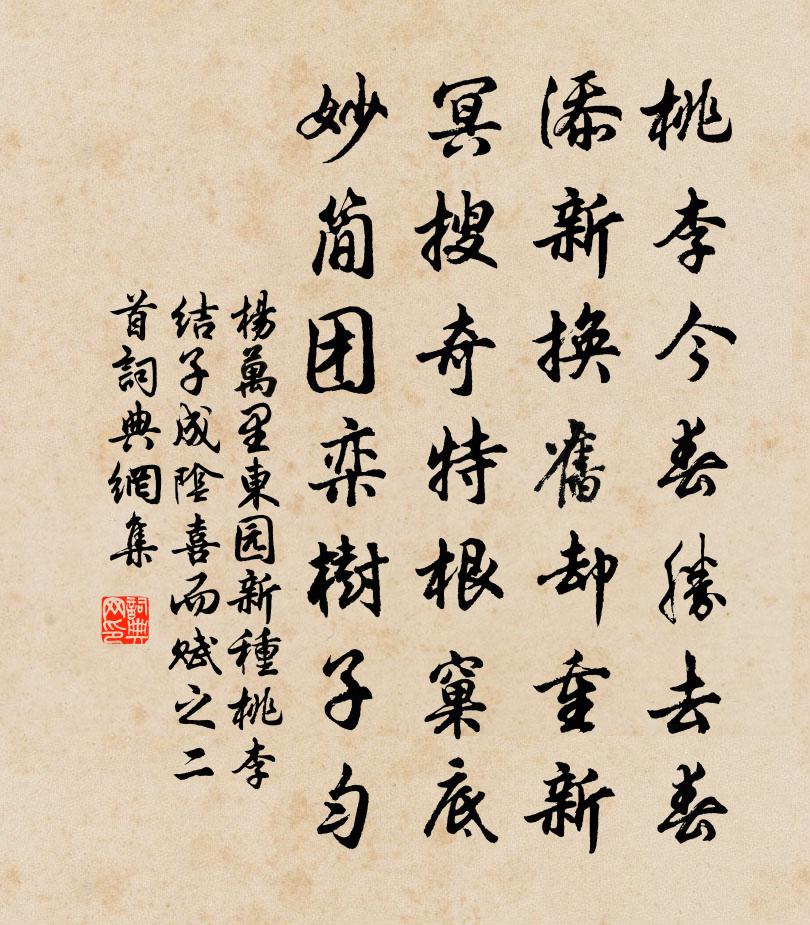 桃李今春勝去春
添新換舊却重新
冥搜奇特根窠底
妙简团栾樹子匀
楊萬里東园新種桃李
结子成陰喜而赋之二
首詞典網集
詞典
网印